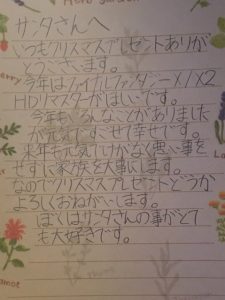 Herb garden
サンタさんへ
いつもクリスマスプレゼントありが
とうございます。
今年はファイナルファンタジーX/X2
HDリマスターがほしいです。
今年もいろんなことがありました
が元気ですごせて幸せです。
来年も元気にけがなく悪い事を
せずに家族を大事にします。
なのでクリスマスプレゼントどうか
よろしくおねがいします。
ぼくはサンタさんの事がとて
も大好きです。
Thyme